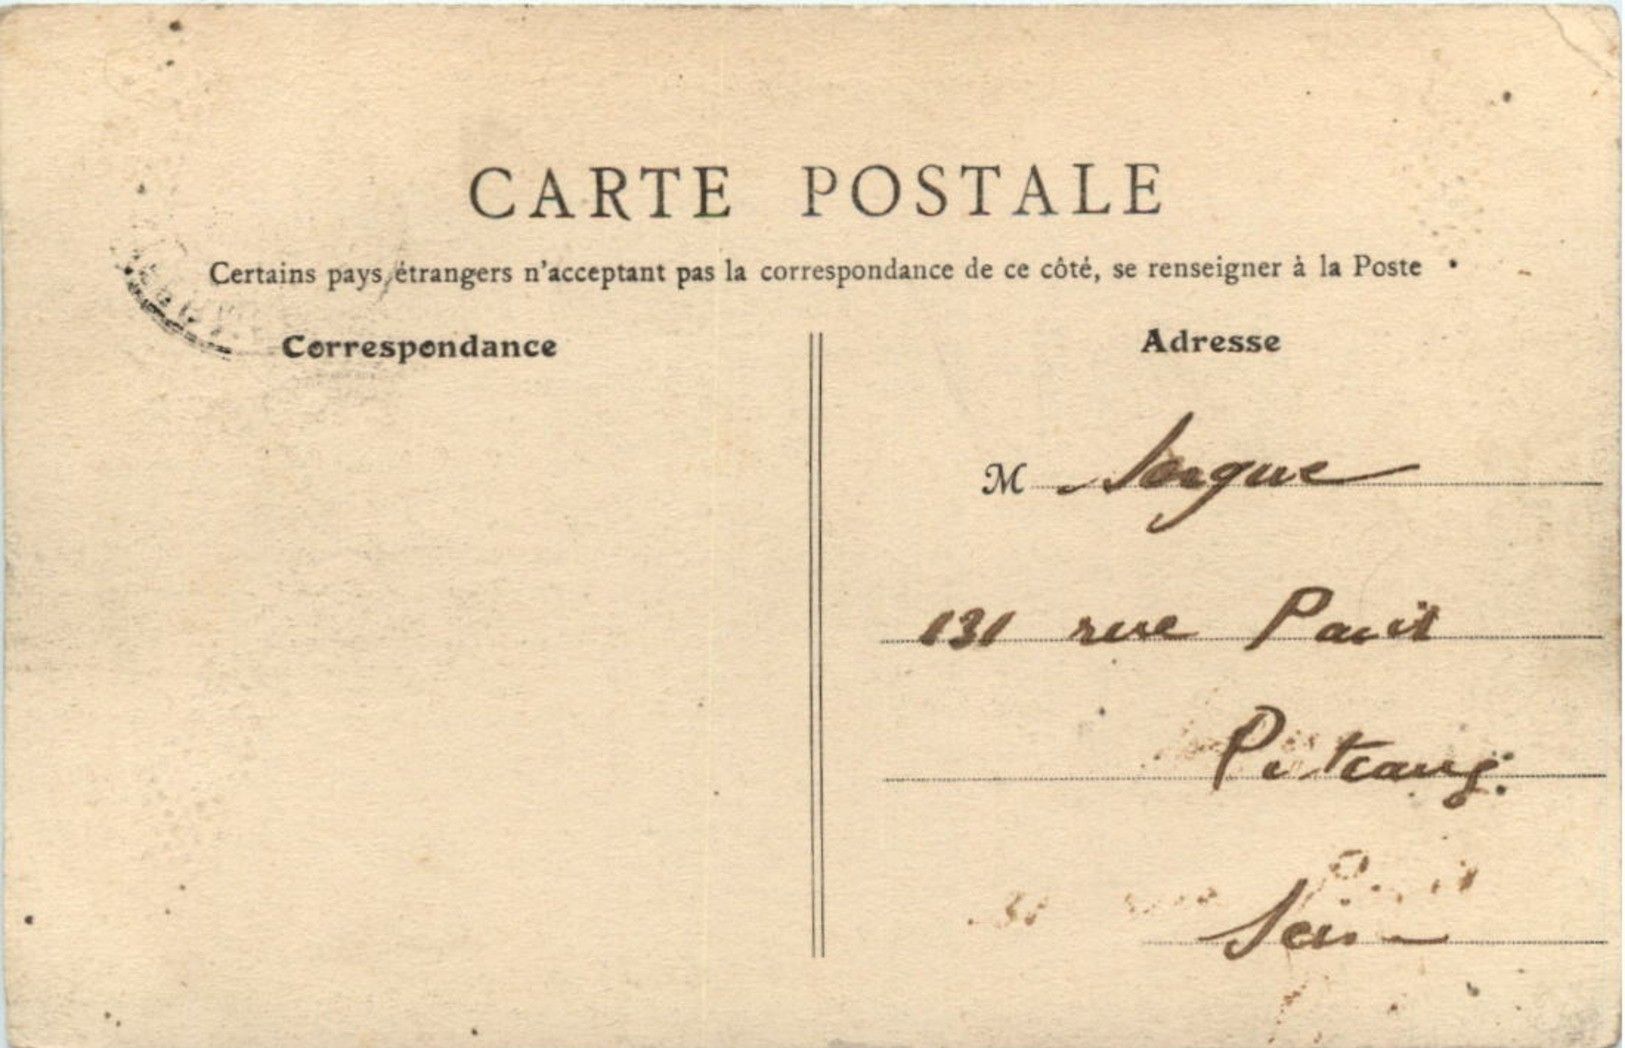 CARTE POSTALE
Certains pays étrangers n'acceptant pas la correspondance de ce côté, se renseigner à la Poste
Correspondance
Adresse
M Sorgue
131 rue Paris
Puteaux
Seine